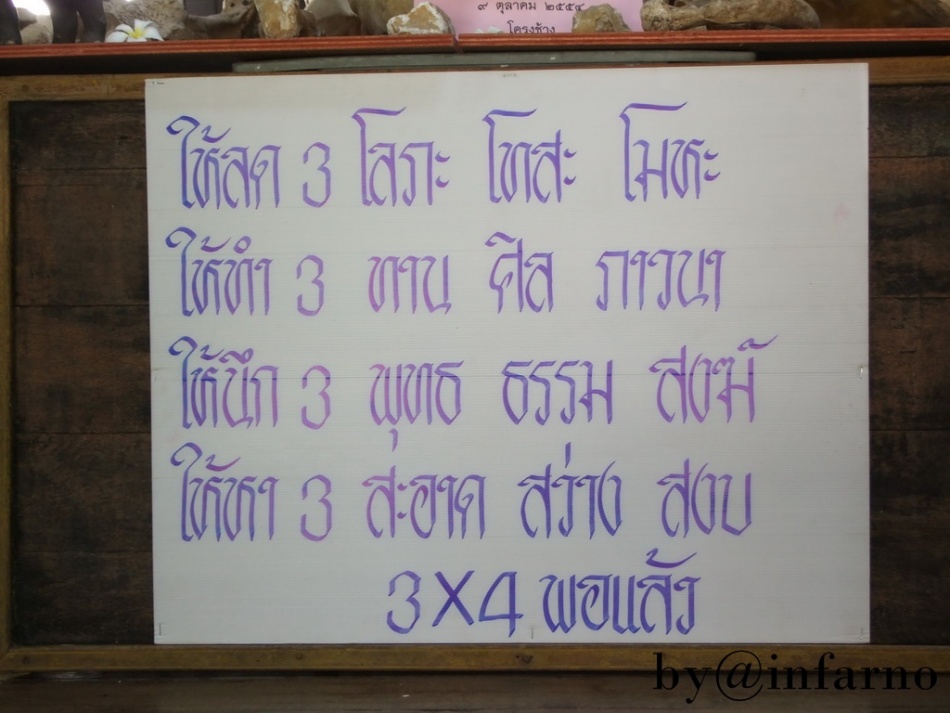 ๙ ตุลาคม ๒๕๕๔
โครงช้าง
ให้ลด 3 โลภะ โทสะ โมหะ
ให้ทำ 3 ทาน ศีล ภาวนา
ให้นึก 3 พุทธ ธรรม สงฆ์
ให้หา 3 สะอาด สว่าง สงบ
3X4 พอแล้ว
by@infarno